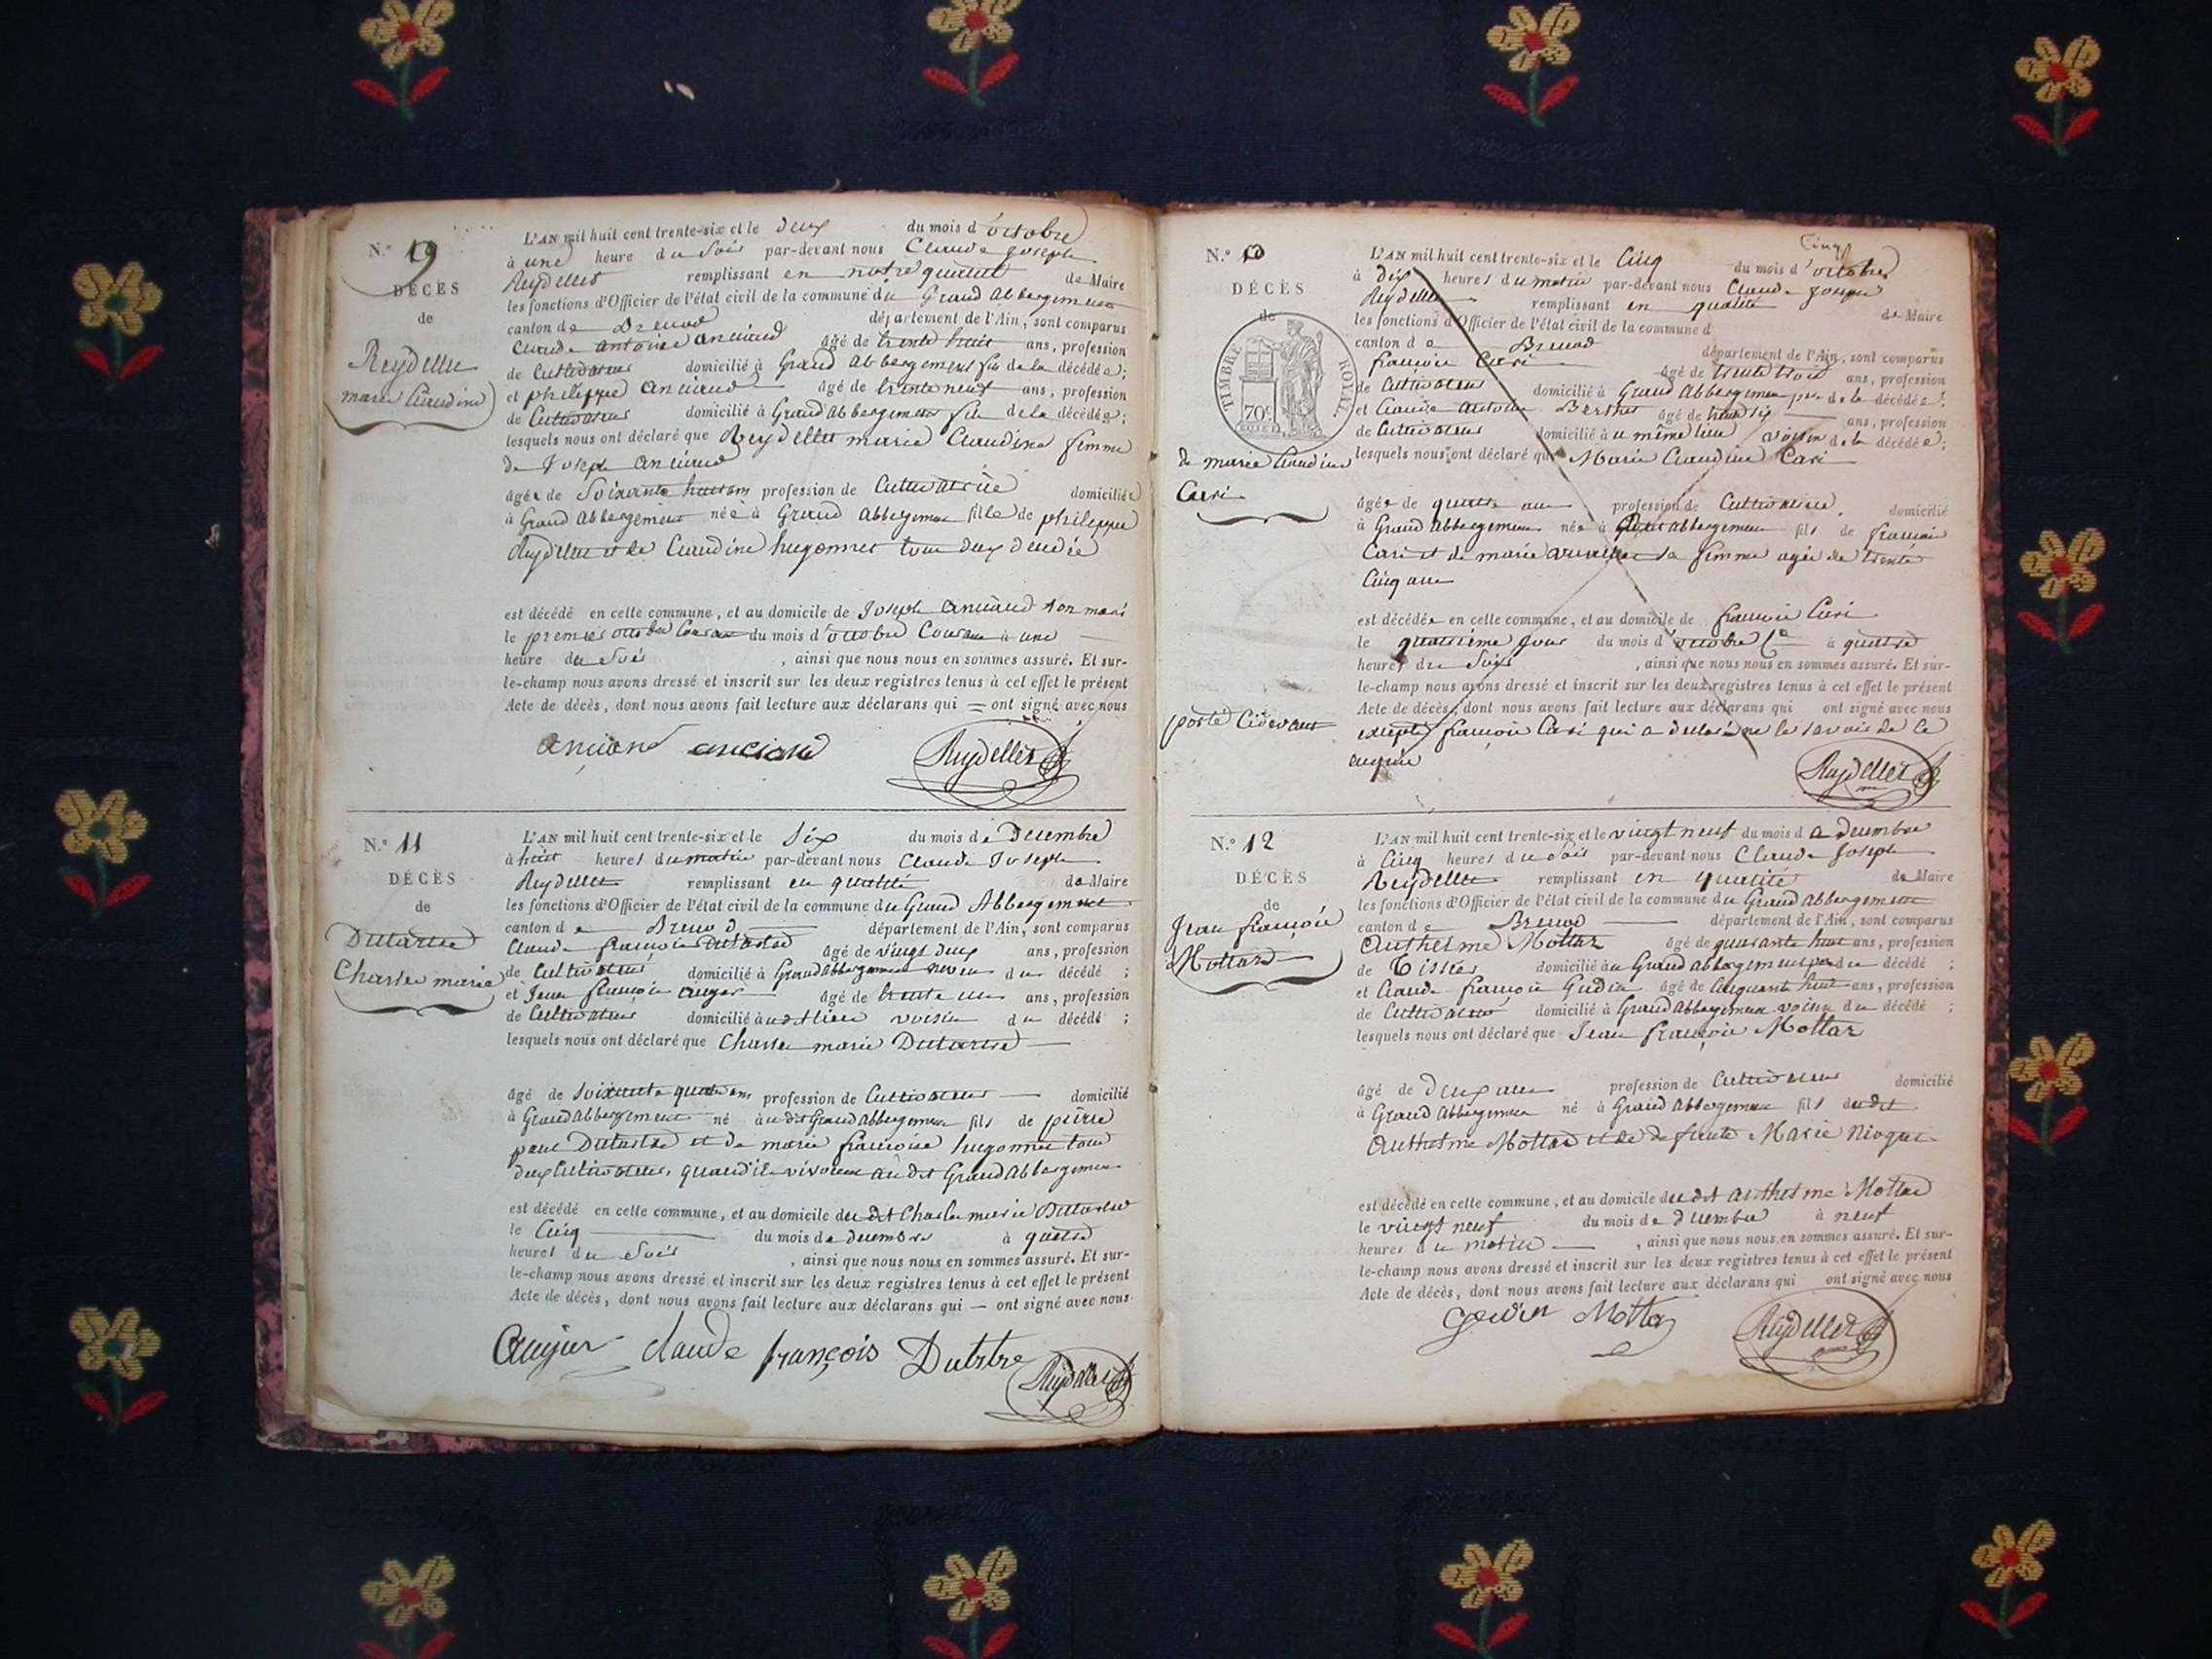 N.º 19
DÉCÈS
de
Reydellet
marie Claudine
L'AN mil huit cent trente-six et le deux du mois d'octobre
à une heure du soir par-devant nous Claude Joseph
Reydellet remplissant en notre qualité de Maire
les fonctions d'Officier de l'état civil de la commune du Grand Abbergement
canton de Brenod département de l'Ain, sont comparus
Claude antoine anciand âgé de trente huit ans, profession
de Cultivateur domicilié à Grand abbergement fils de la décédée;
et philippe anciand âgé de trente neuf ans, profession
de Cultivateur domicilié à Grand abbergement fils de la décédée;
lesquels nous ont déclaré que Reydellet marie Claudine femme
de Joseph anciand
âgée de Soixante huit ans profession de Cultivatrice domiciliée
à Grand abbergement née à Grand abbergement fille de philippe
Reydellet et de Claudine hugonnet tous deux décédés
est décédé en cette commune, et au domicile de Joseph anciand son mari
le premier du mois d'octobre Courant à une
heure du Soir, ainsi que nous nous en sommes assuré. Et sur-
le-champ nous avons dressé et inscrit sur les deux registres tenus à cet effet le présent
Acte de décès, dont nous avons fait lecture aux déclarans qui = ont signé avec nous
anciand anciand Reydellet
N.º 11
DÉCÈS
de
Dutartre
Charles marie
L'AN mil huit cent trente-six et le Six du mois de Decembre
à huit heures du matin par-devant nous Claude Joseph
Reydellet remplissant en qualité de Maire
les fonctions d'Officier de l'état civil de la commune du Grand Abbergement
canton de Brenod département de l'Ain, sont comparus
Claude françois Dutartre âgé de vingt deux ans, profession
de Cultivateur domicilié à Grand abbergement neveu du décédé;
et Jean françois auger âgé de trente un ans, profession
de Cultivateur domicilié au dt lieu voisin du décédé;
lesquels nous ont déclaré que Charles marie Dutartre
âgé de Soixante quatre ans profession de Cultivateur domicilié
à Grand abbergement né au dit Grand abbergement fils de pierre
paul Dutartre et de marie françoise hugonnet tous
deux Cultivateurs, quand ils vivoient au dit Grand abbergement
est décédé en cette commune, et au domicile du dt Charles marie Dutartre
le Cinq du mois de decembre à quatre
heures du Soir, ainsi que nous nous en sommes assuré. Et sur-
le-champ nous avons dressé et inscrit sur les deux registres tenus à cet effet le présent
Acte de décès, dont nous avons fait lecture aux déclarans qui — ont signé avec nous
Claude françois Dutrtre Reydellet
N.º 10
DÉCÈS
de
TIMBRE ROYAL
70c
de marie Claudine
Cari
porté Cidevant
Cinq
L'AN mil huit cent trente-six et le Cinq du mois d'octobre
à dix heures du matin par-devant nous Claude Joseph
Reydellet remplissant en qualité de Maire
les fonctions d'Officier de l'état civil de la commune d
canton de Brenod département de l'Ain, sont comparus
françois Cari âgé de trente trois ans, profession
de Cultivateur domicilié à Grand abbergement père de la décédée;
et Claude antoine Berthet âgé de ans, profession
de Cultivateur domicilié au même lieu voisin de la décédée;
lesquels nous ont déclaré que Marie Claudine Cari
âgée de quatre ans profession de Cultivatrice domicilié
à Grand abbergement née à abbergement fils de françois
Cari et de marie sa femme agée de trente
Cinq ans
est décédée en cette commune, et au domicile de françois Cari
le quatrième jour du mois d'octobre à quatre
heures du Soir, ainsi que nous nous en sommes assuré. Et sur-
le-champ nous avons dressé et inscrit sur les deux registres tenus à cet effet le présent
Acte de décès, dont nous avons fait lecture aux déclarans qui ont signé avec nous
excepté françois Cari qui a déclaré ne le savoir de ce
enquis
Reydellet
N.º 12
DÉCÈS
de
Jean françois
Mottard
L'AN mil huit cent trente-six et le vingt neuf du mois d e decembre
à Cinq heures du soir par-devant nous Claude Joseph
Reydellet remplissant en qualité de Maire
les fonctions d'Officier de l'état civil de la commune du Grand abbergement
canton de Brenod département de l'Ain, sont comparus
Anthelme Mottar âgé de quarante huit ans, profession
de Tissier domicilié au Grand abbergement père du décédé;
et Claude françois Gudin âgé de Cinquante huit ans, profession
de Cultivateur domicilié à Grand abbergement voisin du décédé;
lesquels nous ont déclaré que Jean françois Mottar
âgé de deux ans profession de Cultivateur domicilié
à Grand abbergement né à Grand abbergement fils du dt
Anthelme Mottar et de defunte Marie
est décédé en cette commune, et au domicile du dt anthelme Mottar
le vingt neuf du mois de decembre à neuf
heures du matin, ainsi que nous nous en sommes assuré. Et sur-
le-champ nous avons dressé et inscrit sur les deux registres tenus à cet effet le présent
Acte de décès, dont nous avons fait lecture aux déclarans qui ont signé avec nous
Mottar Reydellet